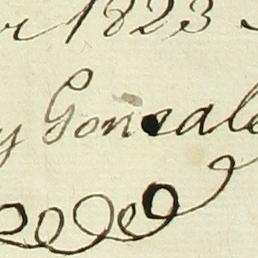 r 1823
y Gonzale